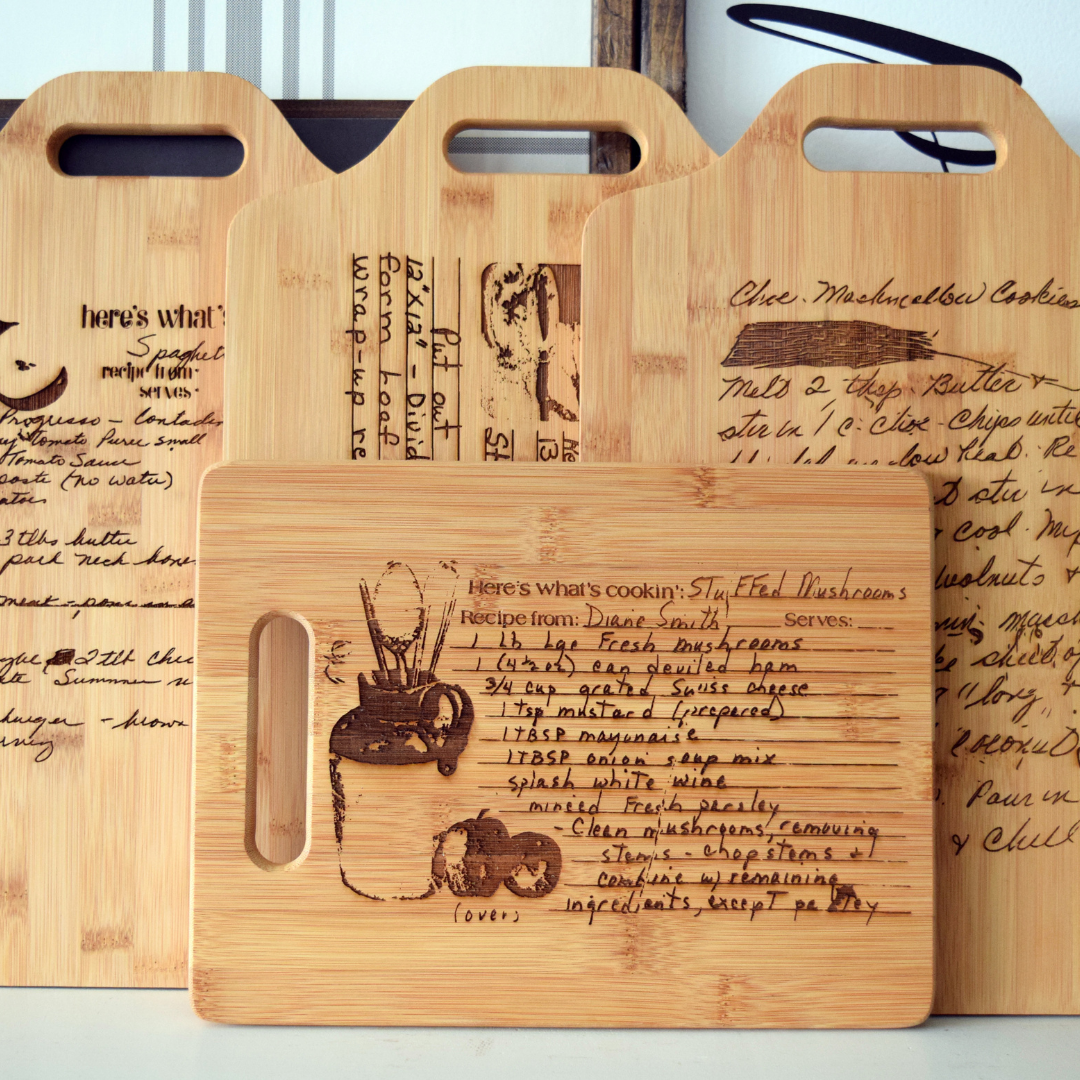 here's what's
Spaghet
recipe from
serves
Progresso - Contadin
Tomato Puree small
Tomato Sauce
paste (no water)
3 tlbs butter
pork neck bones
2 tlb
- brown
Put out
12"x12" - Divid
form loaf
wrap-up re
St
13
Choc. Mashmellow Cookies
Melt 2 tbsp Butter &
stir in 1 c. Choc. Chips until
low heat. Re
stir in
cool. My
walnuts &
min. mash
sheet of
"long,
Coconut
Pour in
& Chill
Here's what's cookin': STuFFed Mushrooms
Recipe from: Diane Smith Serves:
1 Lb Lge Fresh mushrooms
1 (4½ oz) can deviled ham
3/4 cup grated Swiss cheese
1 tsp mustard (prepared)
1 TBSP mayonaise
1 TBSP onion soup mix
splash white wine
minced Fresh parsley
- Clean mushrooms, removing
stems - chop stems &
combine w/ remaining
ingredients, except parsley
(over)